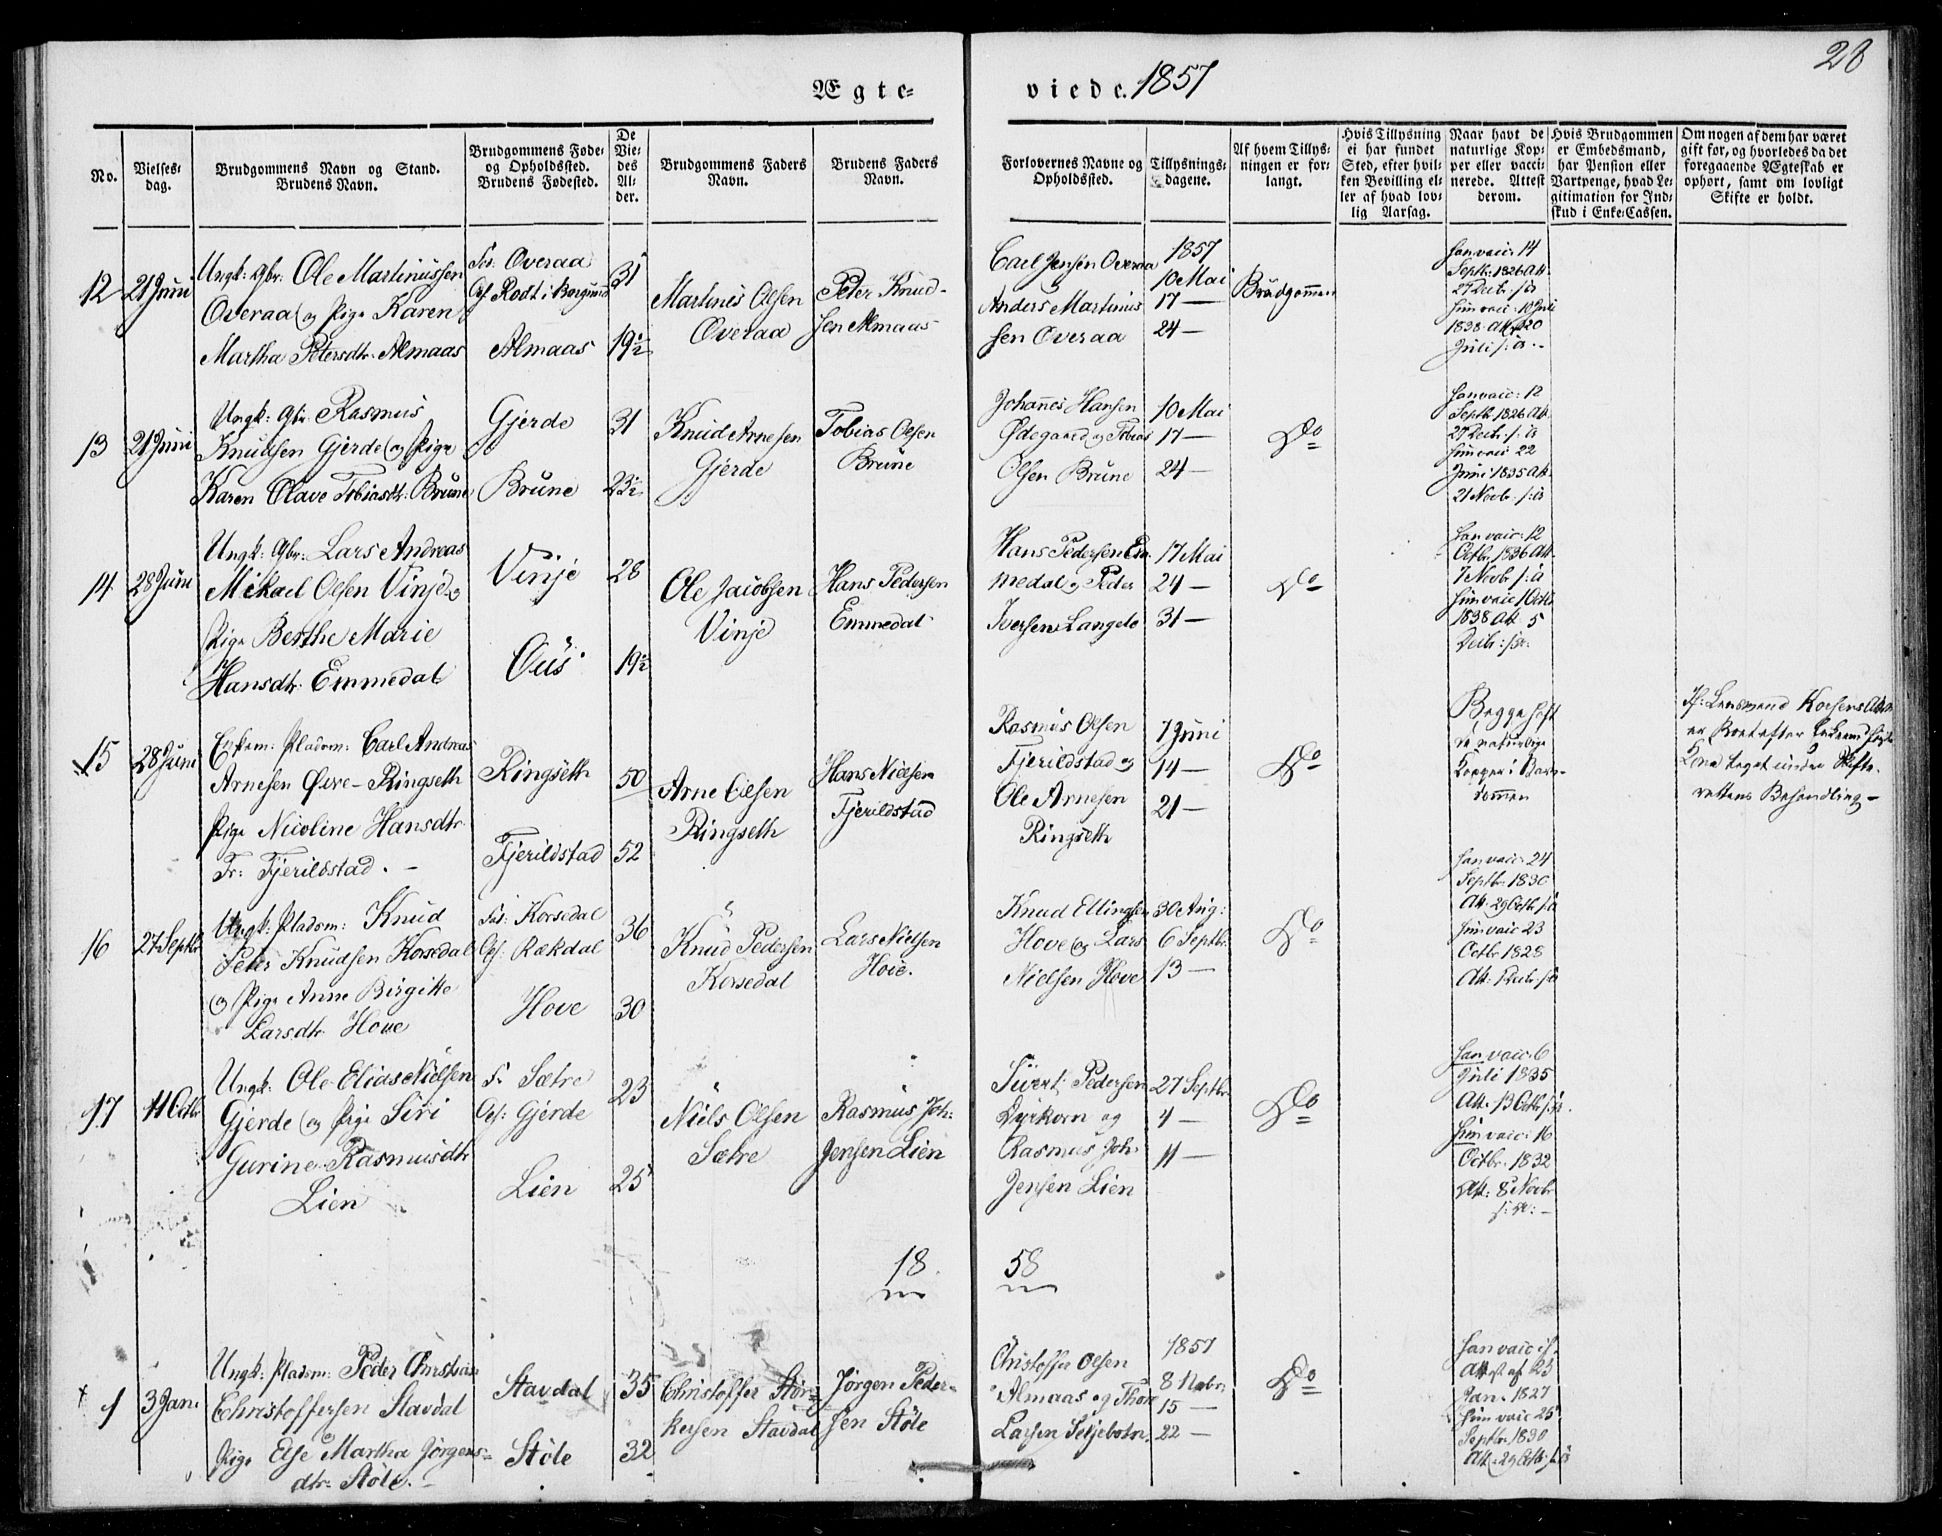 28
Ægte- viede. 1857
No.
Vielses-
dag.
Brudgommens Navn og Stand.
Brudens Navn.
Brudgommens Føde-
og Opholdssted.
Brudens Fødested.
De
Vie-
des
Al-
der.
Brudgommens Faders
Navn.
Brudens Faders
Navn.
Forlovernes Navne og
Opholdssted.
Tillysnings-
dagene.
Af hvem Tillys-
ningen er for-
langt.
Hvis Tillysning
ei har fundet
Sted, efter hvil-
ken Bevilling el-
ler af hvad lov-
lig Aarsag.
Naar havt de
naturlige Kop-
per eller vacci-
nerede. Attest
derom.
Hvis Brudgommen
er Embedsmand,
har Pension eller
Vartpenge, hvad Le-
gitimation for Ind-
skud i Enke-Cassen.
Om nogen af dem har været
gift før, og hvorledes da det
foregaaende Ægteskab er
ophørt, samt om lovligt
Skifte er holdt.
12
21 Juni
Ungk: Gbr: Ole Martinussen
Overaa og Pige Karen
Martha Petersdtr. Almaas
Fös: Overaa
Ops: Rødt i Borgund
Almaas
31
19½
Martines Olsen
Overaa
Peter Knud-
sen Almaas
Carl Jensen Overaa
Anders Martinus
sen Overaa
1857
10 Mai
17 —
24 —
Brudgommen
Han vaic: 14
Septbr 1826 Att.
29 Decbr s: a
Hun vaic: 10 Juli
1838 Att: 20
Juli s: a
13
21 Juni
Ungk: Gbr: Rasmus
Knudsen Gjerde og Pige
Karen Olave Tobiasdtr. Brune
Gjerde
Brune
31
23½
Knud Arnesen
Gjerde
Tobias Olsen
Brune
Johannes Hansen
Ødegaard og Tobias
Olsen Brune
10 Mai
17 —
24 —
Do
Han vaic: 12
Septbr 1826 Att.
29 Decbr s: a
Hun vaic 22
Juni 1835 Att.
21 Novbr s: a
14
28 Juni
Ungk: Gbr: Lars Andreas
Mikael Olsen Vinje og
Pige Berthe Marie
Hansdtr. Emmedal
Vinje
Ous
28
19½
Ole Jacobsen
Vinje
Hans Pedersen
Emmedal
Hans Pedersen Em-
medal og Peder
Iversen Langelo
17 Mai
24 —
31 —
Do
Han vaic: 12
Octbr 1836 Att.
7 Novbr s: a
Hun vaic 1 Octb
1838 Att 5
Decbr: s: a
15
28 Juni
Enkem: Pladsm: Carl Andreas
Arnesen Øvre-Ringseth
Pige Nicoline Hansdtr
Fr: Fjerildstad.
Ringseth
Fjerildstad
50
52
Arne Olsen
Ringseth
Hans Nielsen
Fjerildstad
Rasmus Olsen
Fjerildstad og
Ole Arnesen
Ringseth
7 Juni
14 —
21 —
Do
Begge haft
de naturlige
Kopper i Barn-
dommen
If: Lensmand Attest
er Boet efter
Kone taget under Skifte-
rettens Behandling —
16
27 Septbr
Ungk: Pladsm: Knud
Peter Knudsen Korsedal
og Pige Anne Birgitte
Larsdtr Hove
Fös: Korsedal
Ops: Rækdal
Hove
36
30
Knud Pedersen
Korsedal
Lars Nielsen
Hove.
Knud Ellingsen
Hove og Lars
Nielsen Hove
30 Aug:
6 Septbr:
13 —
Do
Han vaic: 24
Septbr 1830
Att. 29 Octbr s: a
Hun vaic 23
Octbr 1828
Att: Decbr s: a
17
11 Octbr
Ungk: Ole Elias Nielsen
Gjerde og Pige Siri
Gurine Rasmusdtr
Lien
F: Sætre
Ops: Gjerde
Lien
23
25
Niels Olsen
Sætre
Rasmus Joh:
Jensen Lien
Sivert Pedersen
Dyrkorn og
Rasmus Joh:
Jensen Lien
27 Septbr
4 —
11 —
Do
Han vaic: 6
Juli 1835
Att. 13 Octbr s: a.
Hun vaic: 16
Octbr. 1832
Att: 8 Novbr
s: a: —
18 58
1
3 Jan:
Ungk: Pladsm: Peder Christian
Christoffersen Stavdal
Pige Else Martha Jørgens-
dtr. Støle. —
Stavdal
Støle
35
32
Christoffer Stør-
kersen Stavdal
Jørgen Peder-
sen Støle
Christoffer Olsen
Almaas og Thore
Larsen Seljebotn.
1857
8 Nobr:
15 —
22 —
Do
Han vaic
Attest af 23
Jan: 1827
Hun vaic 25
Septbr. 1830
Att. 29 Octbr s: a